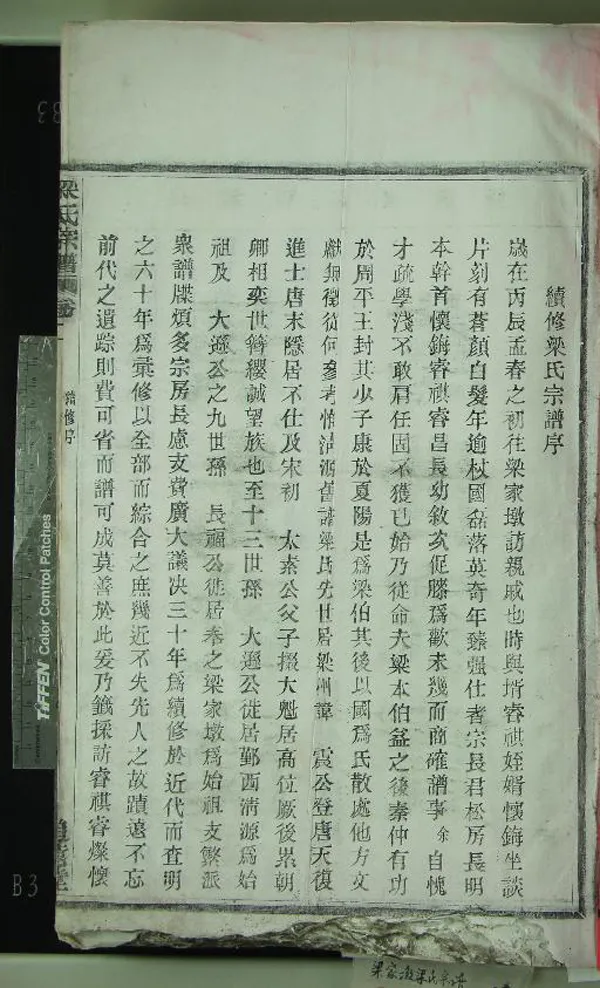 續修梁氏宗譜序
歲在丙辰孟春之初往梁家墩訪親戚也時與壻睿祺姪婿懷鋂坐談
片刻有蒼顏白髮年逾杖國磊落英奇年臻强仕者宗長君松房長明
本幹首懷鋂睿祺睿昌長幼敘亥促膝爲歡未幾而商確譜事余自愧
才疏學淺不敢肩任固不獲已始乃從命夫梁本伯益之後秦仲有功
於周平王封其少子康於夏陽是爲梁伯其後以國爲氏散處他方文
獻無徵從何參考惟沾源舊譜梁氏先世居梁州諱 震公登唐天復
進士唐末隱居不仕及宋初 太素公父子掇大魁居高位厥後累朝
卿相奕世簪纓誠望族也至十三世孫 大遜公徙居鄞西清源爲始
祖及 大遜公之九世孫 長福公徙居奉之梁家墩爲始祖支繁派
衆譜牒煩多宗房長慮支費廣大議决三十年爲續修於近代而查明
之六十年爲彙修以全部而綜合之庶幾近不失先人之故蹟遠不忘
前代之遺踪則費可省而譜可成莫善於此爰乃籤採訪睿祺睿燦懷
梁氏宗譜
卷一
續修序
B3
TIFFEN Color Control Patches
梁家墩梁氏宗譜